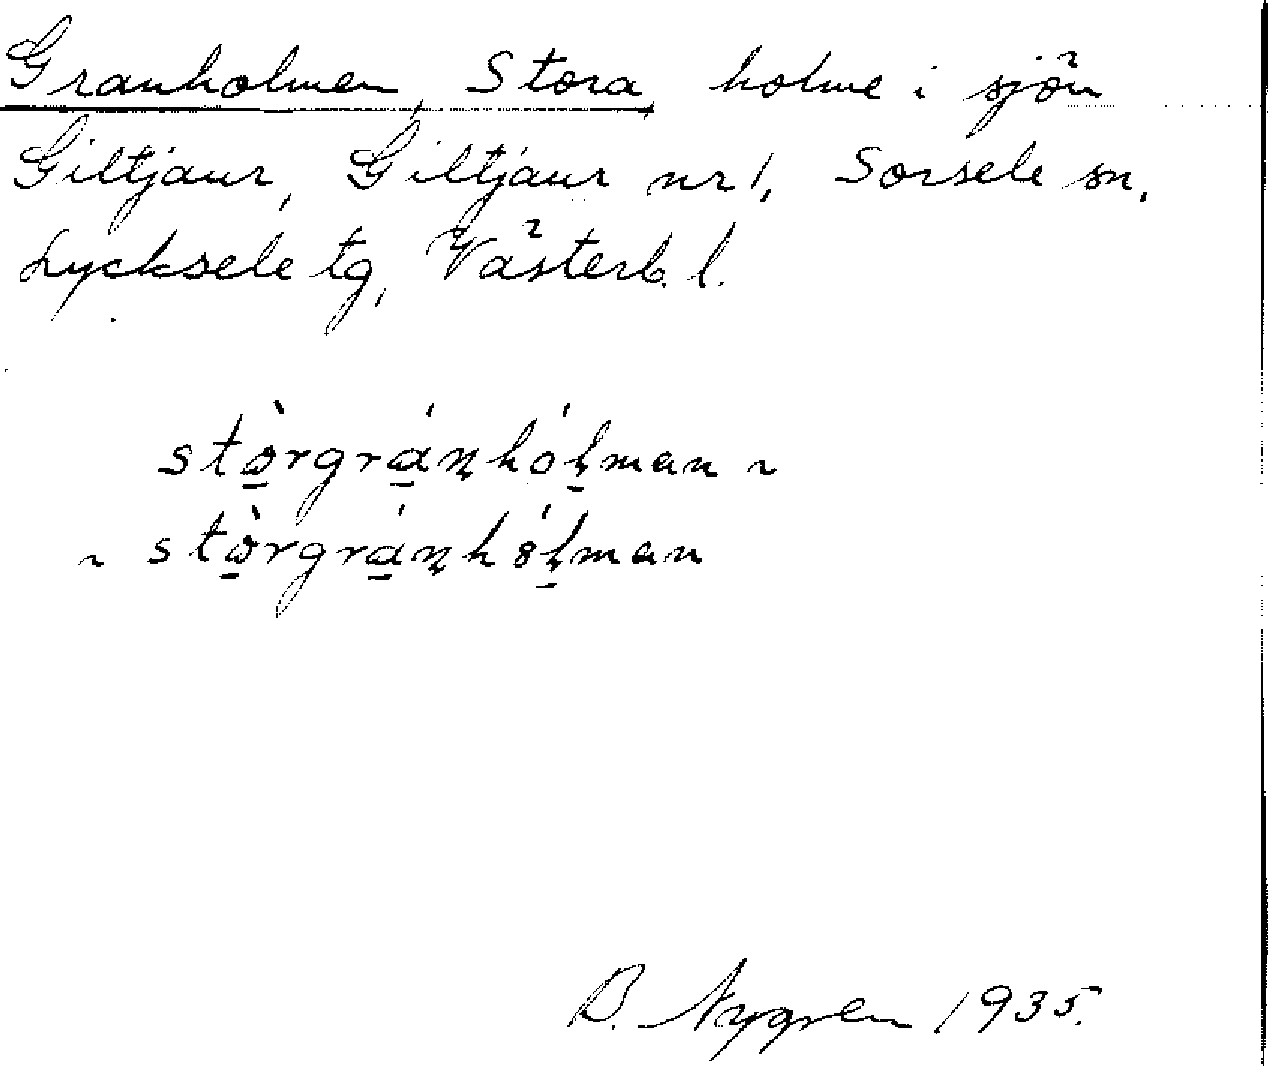 Granholmen, Stora, holme i sjön
Giltjaur, Giltjaur nr 1, Sorsele sn,
Lycksele tg, Västerb. l.
stò̠rgrá̠n̥hól̥̠man ~
~ stò̠rgrá̠n̥hól̥̠man
B. Nygren 1935.